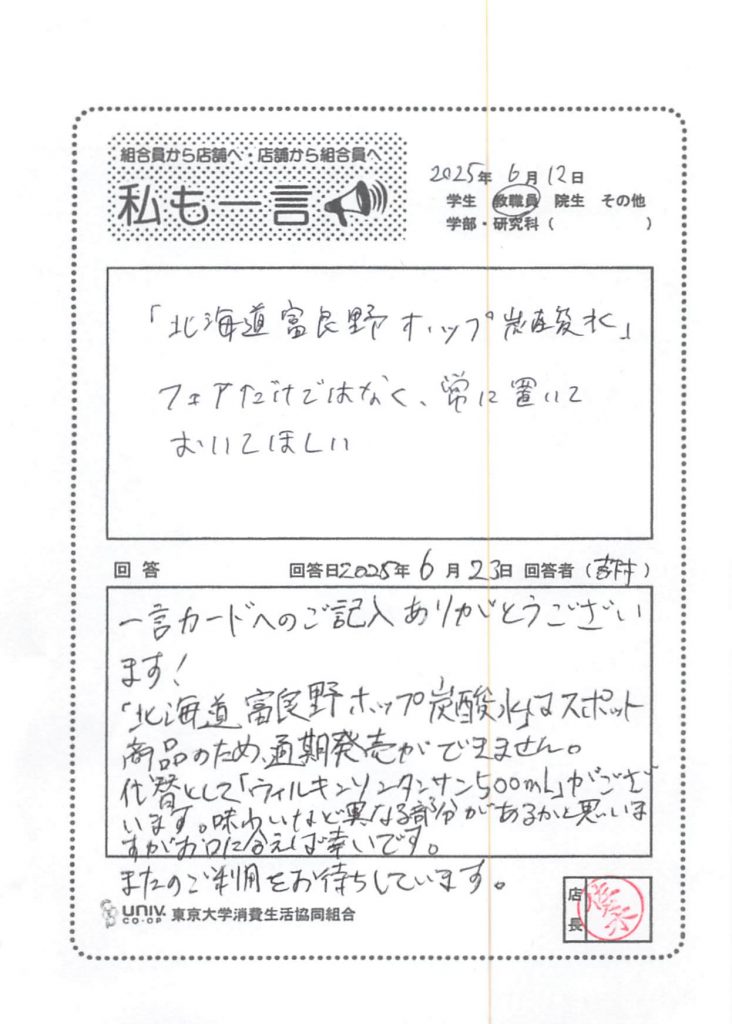 組合員から店舗へ・店舗から組合員へ
私も一言
2025年 6月 12日
学生 教職員 院生 その他
学部・研究科 ( )
「北海道富良野ホップ炭酸水」
フェアだけではなく、常に置いて
おいてほしい
回答 回答日2025年 6月 23日 回答者 ( )
一言カードへのご記入ありがとうござい
ます!
「北海道富良野ホップ炭酸水」はスポット
商品のため、通期発売ができません。
代替として「ウィルキンソンタンサン500mL」がござ
います。味わいなど異なる部分があるかと思いま
すがお口に合えば幸いです。
またのご利用をお待ちしています。
UNIV. CO-OP 東京大学消費生活協同組合
店長